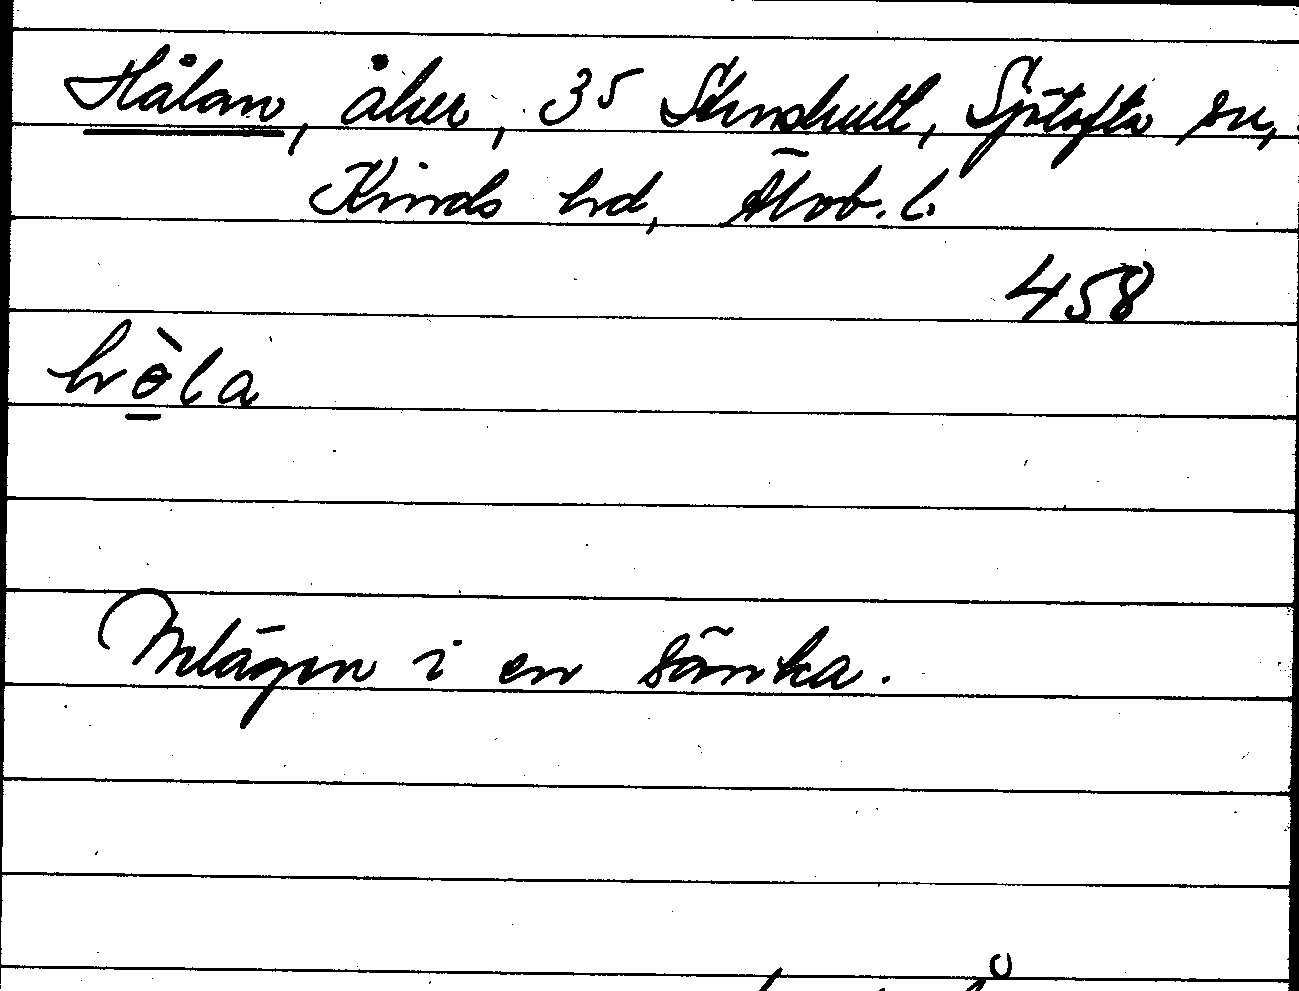 Hålan, åker, 35 Skruvhult, Sjötofta sn,
Kinds hd, Älvsb. l.
458
hòla
Belägen i en sänka.